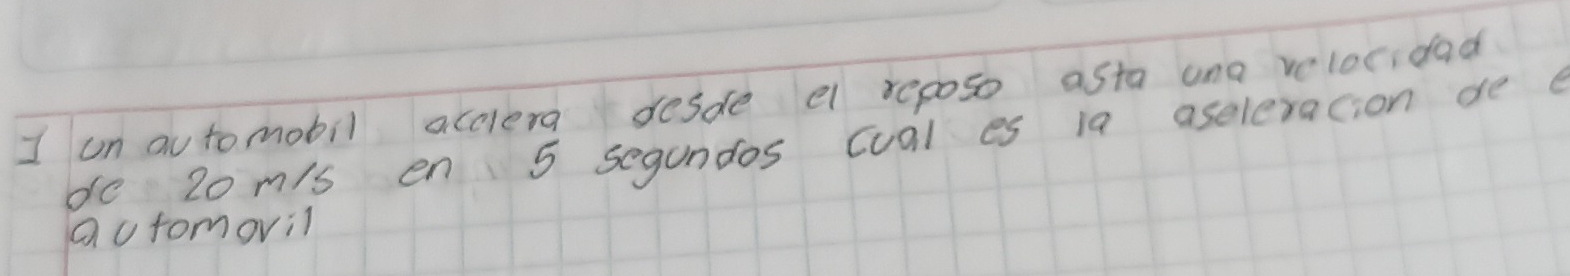 1 un automobil acelera desde el reposo asta una velocidad
de 20 m/s en 5 segundos cual es la aseleracion de e
automovil